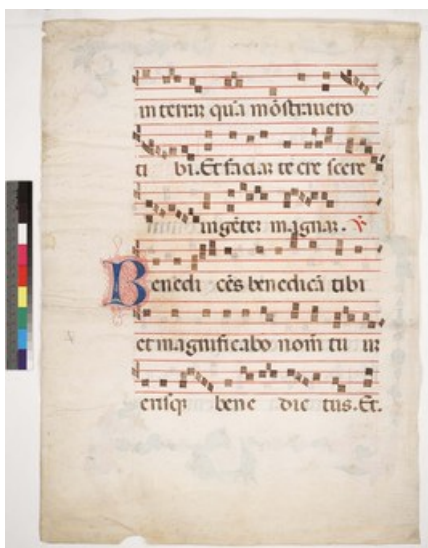 in terrā quā mōstravero
ti bi. Et faciā te cre scere
in gētē magnā. ℣
Benedi cēs benedicā tibi
et magnificabo nom̄ tu ū
erisq̄ bene dic tus. Et.